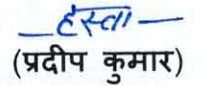 हस्ता
(प्रदीप कुमार)